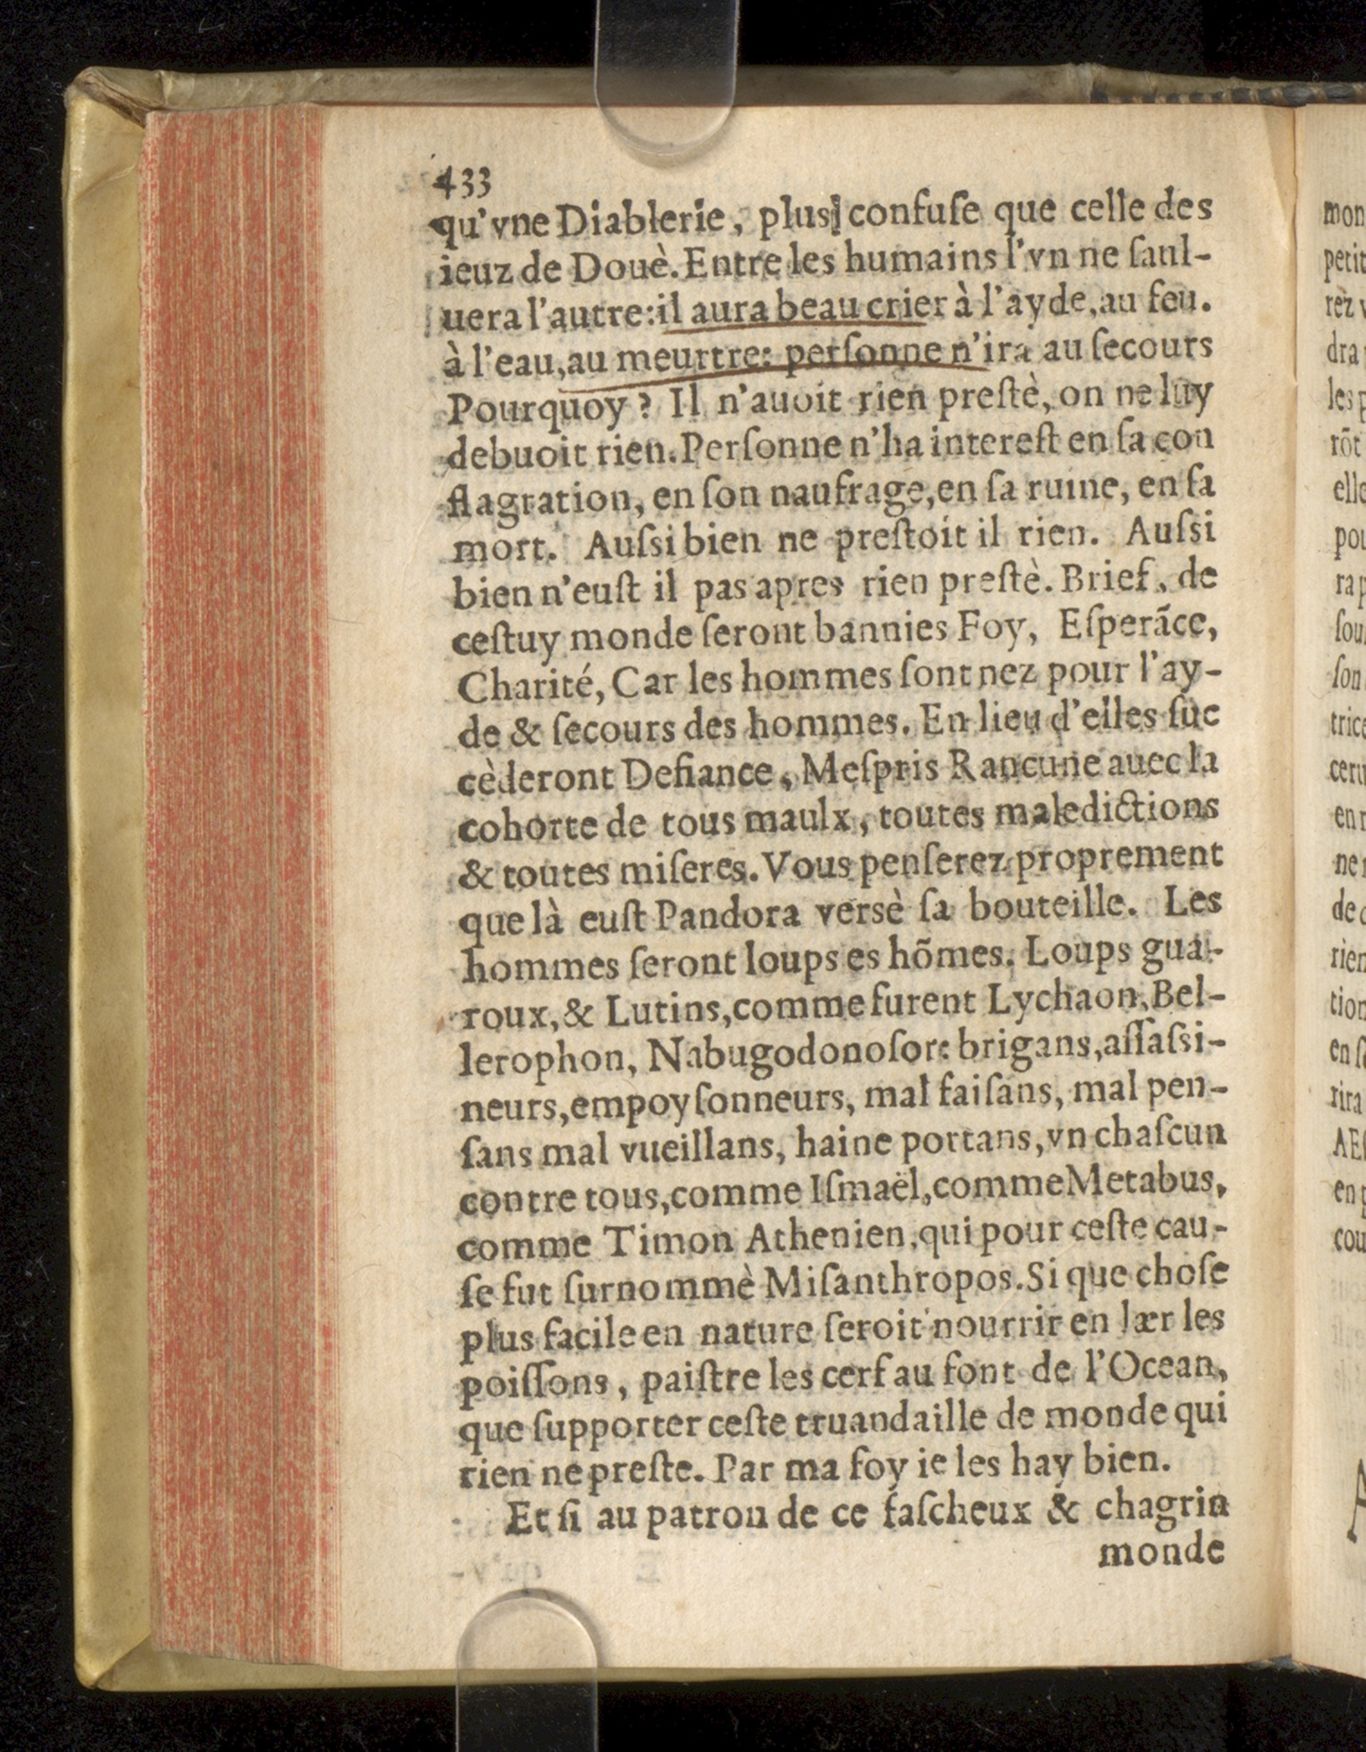 433
qu'vne Diablerie, plus confuſe que celle des
ieuz de Douè. Entre les humains l'vn ne ſaul-
uera l'autre: il aura beau crier à l'ayde, au feu.
à l'eau, au meurtre: perſonne n'ira au ſecours
Pourquoy? Il n'auoit rien preſtè, on ne luy
debuoit rien. Perſonne n'ha intereſt en ſa con
flagration, en ſon naufrage, en ſa ruine, en ſa
mort. Auſsi bien ne preſtoit il rien. Auſsi
bien n'euſt il pas apres rien preſtè. Brief, de
ceſtuy monde ſeront bannies Foy, Eſperãce,
Charité, Car les hommes ſont nez pour l'ay-
de & ſecours des hommes. En lieu d'elles ſuc
cèderont Defiance, Meſpris Rancune auec la
cohorte de tous maulx, toutes maledictions
& toutes miſeres. Vous penſerez proprement
que là euſt Pandora versè ſa bouteille. Les
hommes ſeront loups es hõmes. Loups gua-
roux, & Lutins, comme furent Lychaon, Bel-
lerophon, Nabugodonoſor: brigans, aſſaſsi-
neurs, empoyſonneurs, mal faiſans, mal pen-
ſans mal vueillans, haine portans, vn chaſcun
contre tous, comme Iſmaël, comme Metabus,
comme Timon Athenien, qui pour ceſte cau-
ſe fut ſurnommè Miſanthropos. Si que choſe
plus facile en nature ſeroit nourrir en lær les
poiſſons, paiſtre les cerf au font de l'Ocean,
que ſupporter ceſte truandaille de monde qui
rien ne preſte. Par ma foy ie les hay bien.
Et ſi au patron de ce faſcheux & chagrin
monde